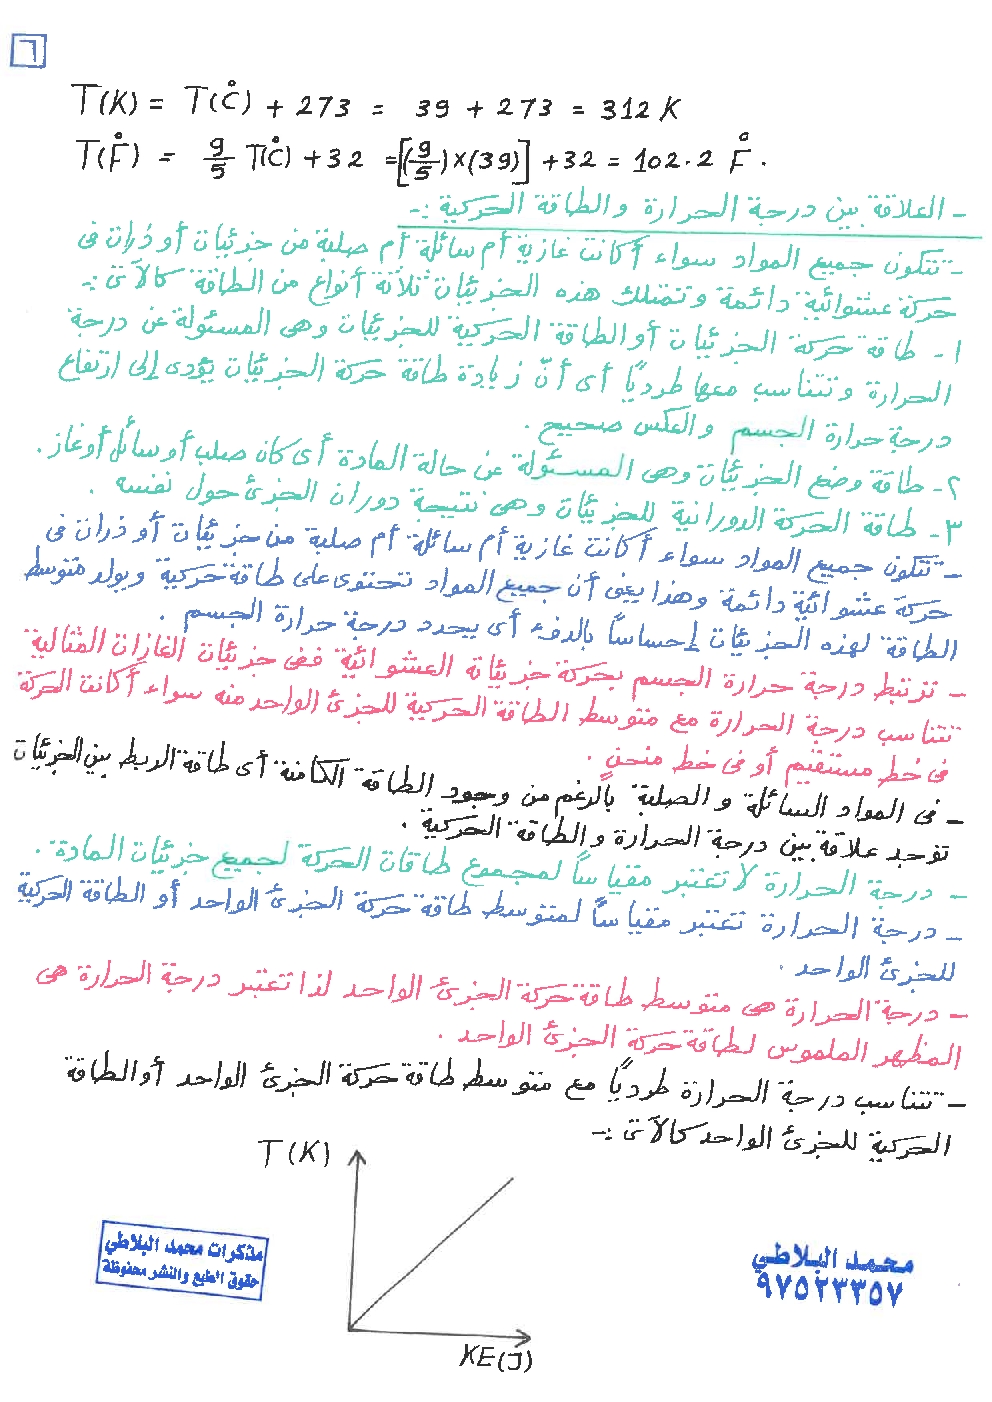 ٦
T(K) = T(C°) + 273 = 39 + 273 = 312 K
T(F°) = 9/5 T(C°) + 32 = [(9/5)×(39)] + 32 = 102.2 F°.
- العلاقة بين درجة الحرارة والطاقة الحركية :-
- تتكون جميع المواد سواء أكانت غازية أم سائلة أم صلبة من جزئيات أو ذرات فى
حركة عشوائية دائمة وتمتلك هذه الجزئيات ثلاثة أنواع من الطاقة كالآتى :-
١- طاقة حركة الجزئيات أو الطاقة الحركية للجزئيات وهى المسئولة عن درجة
الحرارة وتتناسب معها طرديًا أى أنّ زيادة طاقة حركة الجزئيات يؤدى إلى ارتفاع
درجة حرارة الجسم والعكس صحيح .
٢- طاقة وضع الجزئيات وهى المسئولة عن حالة المادة أى كان صلب أو سائل أو غاز .
٣- طاقة الحركة الدورانية للجزئيات وهى نتيجة دوران الجزئ حول نفسه .
- تتكون جميع المواد سواء أكانت غازية أم سائلة أم صلبة من جزئيات أو ذرات فى
حركة عشوائية دائمة وهذا يعنى أن جميع المواد تحتوى على طاقة حركية ويولد متوسط
الطاقة لهذه الجزئيات إحساساً بالدفء أى يحدد درجة حرارة الجسم .
- ترتبط درجة حرارة الجسم بحركة جزئياته العشوائية ففى جزئيات الغازات المثالية
تتناسب درجة الحرارة مع متوسط الطاقة الحركية للجزئ الواحد منه سواء أكانت الحركة
فى خط مستقيم أو فى خط منحنٍ .
- فى المواد السائلة والصلبة بالرغم من وجود الطاقة الكامنة أى طاقة الربط بين الجزئيات
توجد علاقة بين درجة الحرارة والطاقة الحركية .
- درجة الحرارة لا تعتبر مقياساً لمجموع طاقات الحركة لجميع جزئيات المادة .
- درجة الحرارة تعتبر مقياساً لمتوسط طاقة حركة الجزئ الواحد أو الطاقة الحركية
للجزئ الواحد .
- درجة الحرارة هى متوسط طاقة حركة الجزئ الواحد لذا تعتبر درجة الحرارة هى
المظهر الملموس لطاقة حركة الجزئ الواحد .
- تتناسب درجة الحرارة طرديًا مع متوسط طاقة حركة الجزئ الواحد أو الطاقة
الحركية للجزئ الواحد كالآتى :-
T (K)
KE (J)
مذكرات محمد البلاطي
حقوق الطبع والنشر محفوظة
محمد البلاطي
٩٧٥٢٣٣٥٧